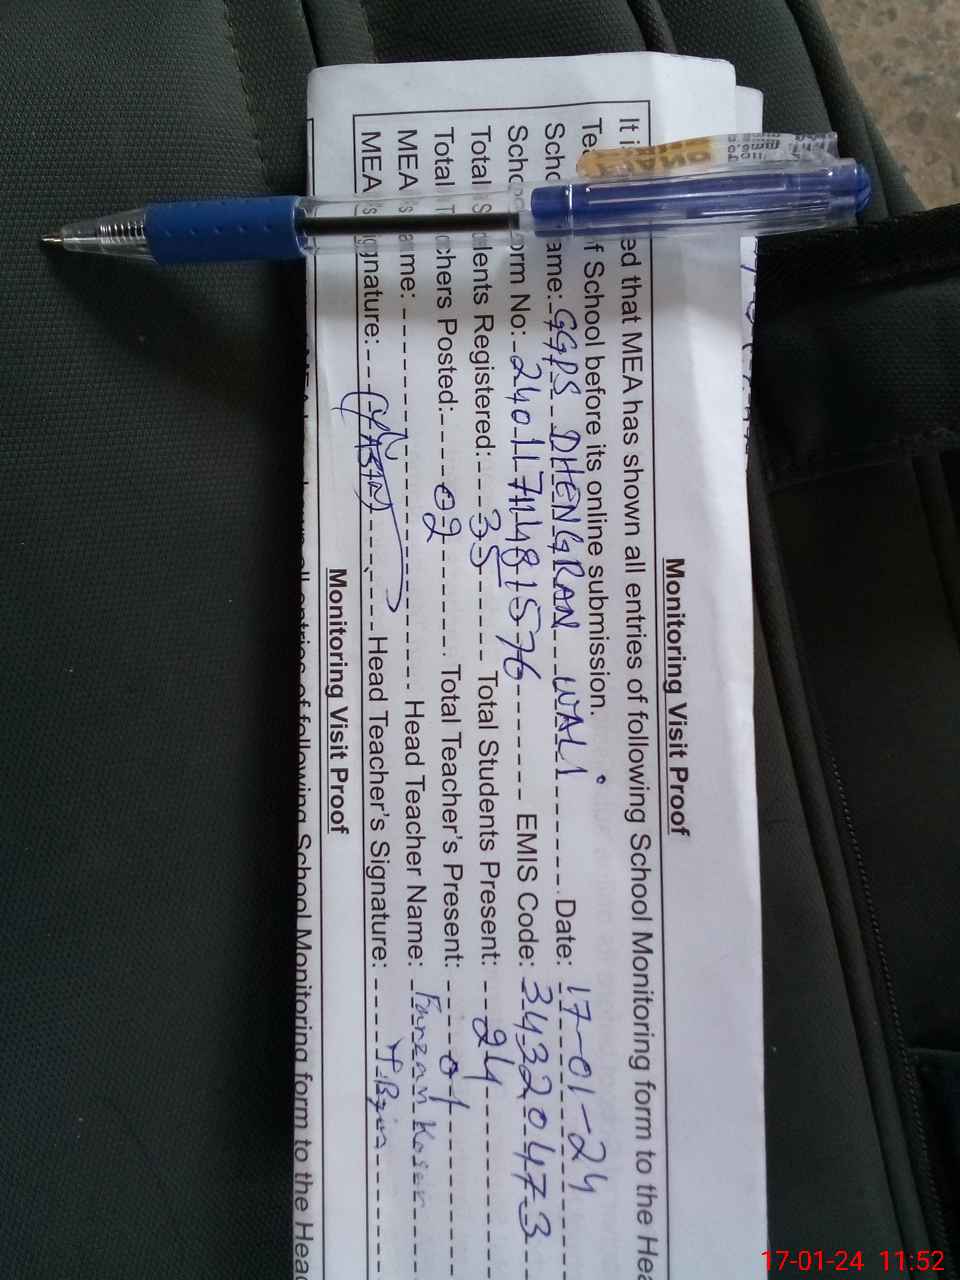 Monitoring Visit Proof
It i ed that MEA has shown all entries of following School Monitoring form to the Hea
Te f School before its online submission.
Scho ame: GGPS DHENGRAN WALI Date: 17-01-24
Schoo orm No: 2401171481576 EMIS Code: 34320473
Total S dents Registered: 35 Total Students Present: 24
Total T chers Posted: 02 Total Teacher's Present: 01
MEA 's ame: Head Teacher Name: Farzan Koser
MEA 's ignature: (YASIN) Head Teacher's Signature:
Monitoring Visit Proof
all entries of following School Monitoring form to the Head
17-01-24 11:52